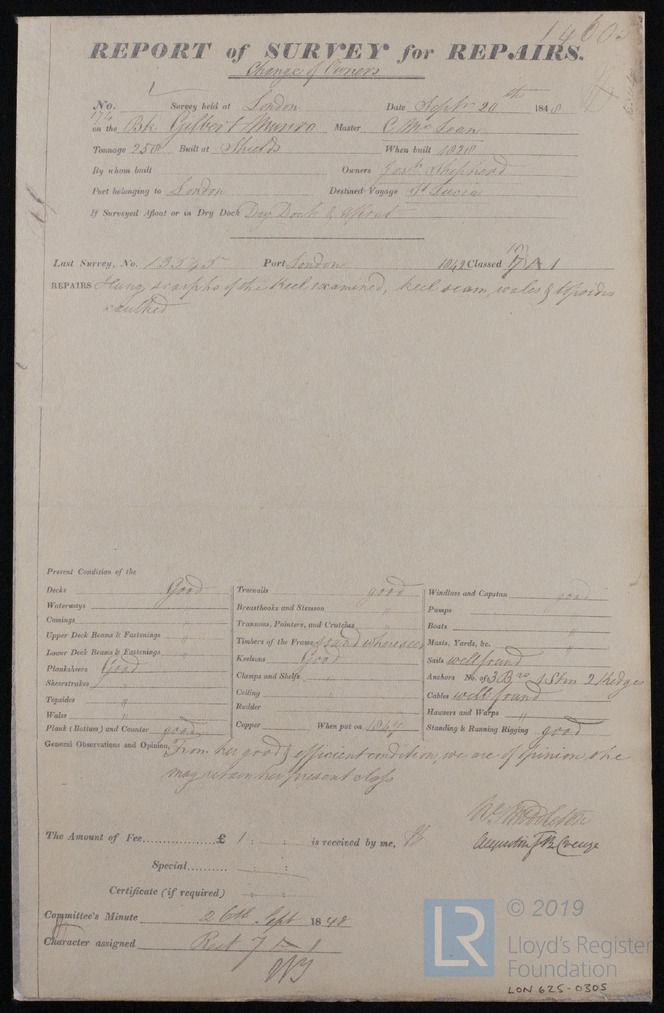 REPORT of SURVEY for REPAIRS.
Change of Owners
No. 174 Survey held at London Date Septr 20th 1848
on the Bk Gilbert Munro Master C Mc Lean
Tonnage 258 Built at Shields When built 1838
By whom built Owners Josh Shepherd
Port belonging to London Destined Voyage St Lucia
If Surveyed Afloat or in Dry Dock Dry Dock & Afloat
Last Survey, No. 13545 Port London 1842 Classed 7 A 1
REPAIRS Hung, scarphs of the Keel examined, keel seam, wales & Topsides
caulked
Present Condition of the
Decks Good
Waterways "
Comings "
Upper Deck Beams & Fastenings "
Lower Deck Beams & Fastenings "
Plankshears Good
Sheerstrakes "
Topsides "
Wales "
Plank (Bottom) and Counter good
Treenails good
Breasthooks and Stemson "
Transoms, Pointers, and Crutches "
Timbers of the Frame sound where seen
Keelsons Good
Clamps and Shelfs "
Ceiling "
Rudder
Copper When put on 1847
Windlass and Capstan good
Pumps "
Boats "
Masts, Yards, &c. "
Sails well found
Anchors No. of 3 Bro 1 Strm 2 Kedges
Cables well found
Hawsers and Warps "
Standing & Running Rigging good
General Observations and Opinion, From her good & efficient condition, we are of opinion, she
may retain her present class
Augustin F B Creuze
The Amount of Fee £ 1 : : is received by me,
Special : :
Certificate (if required) : :
Committee's Minute 26th Sept 1848
Character assigned Rest 7 A 1
© 2019
LR Lloyd's Register
Foundation
LON 625-0305